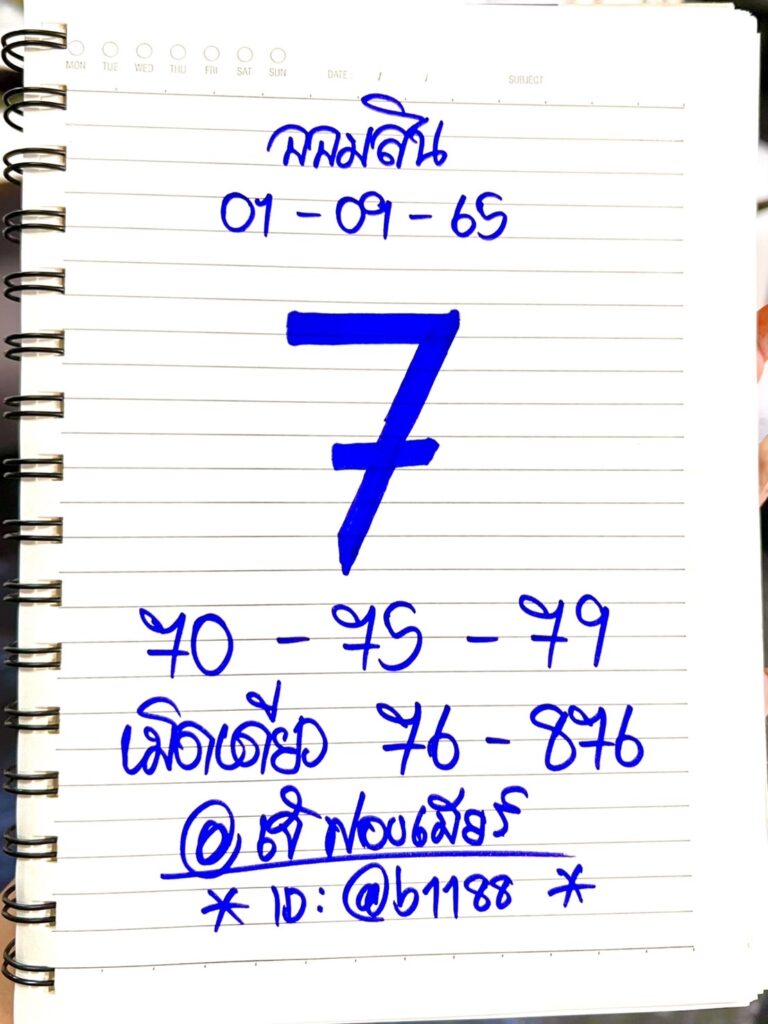 MON TUE WED THU FRI SAT SUN DATE : / / SUBJECT
ออมสิน
01 - 09 - 65
7
70 - 75 - 79
เม็ดเดียว 76 - 876
@ เจ๊ฟองเบียร์
* ID : @b1188 *